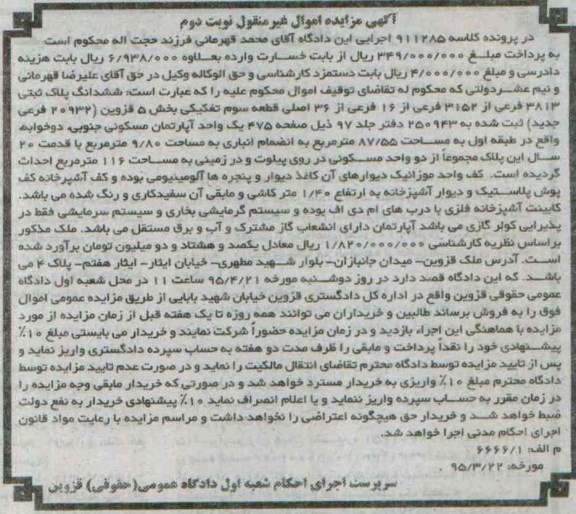 آگهی مزایده اموال غیر منقول نوبت دوم
در پرونده کلاسه ۹۱۱۲۸۵ اجرایی این دادگاه آقای محمد قهرمانی فرزند حجت اله محکوم است
به پرداخت مبلغ ۳۴۹/۰۰۰/۰۰۰ ریال از بابت خسارت وارده بعلاوه ۶/۹۳۸/۰۰۰ ریال بابت هزینه
دادرسی و مبلغ ۴/۰۰۰/۰۰۰ ریال بابت دستمزد کارشناسی و حق الوکاله وکیل در حق آقای علیرضا قهرمانی
و نیم عشر دولتی که محکوم له تقاضای توقیف اموال محکوم علیه را که عبارت است: ششدانگ پلاک ثبتی
۳۸۱۳ فرعی از ۳۱۵۲ فرعی از ۱۶ فرعی از ۳۶ اصلی قطعه سوم تفکیکی بخش ۵ قزوین (۲۰۹۳۲ فرعی
جدید) ثبت شده به ۲۵۰۹۴۳ دفتر جلد ۹۷ ذیل صفحه ۴۷۵ یک واحد آپارتمان مسکونی جنوبی، دوخوابه
واقع در طبقه اول به مساحت ۸۷/۵۵ مترمربع به انضمام انباری به مساحت ۹/۸۰ مترمربع با قدمت ۲۰
سال این پلاک مجموعاً از دو واحد مسکونی در روی پیلوت و در زمینی به مساحت ۱۱۶ مترمربع احداث
گردیده است. کف واحد موزائیک دیوارهای آن کاغذ دیوار و پنجره ها آلومینیومی بوده و کف آشپرخانه کف
پوش پلاستیک و دیوار آشپزخانه به ارتفاع ۱/۴۰ متر کاشی و مابقی آن سفیدکاری و رنگ شده می باشد.
کابینت آشپزخانه فلزی با درب های ام دی اف بوده و سیستم گرمایشی بخاری و سیستم سرمایشی فقط در
پذیرایی کولر گازی می باشد آپارتمان دارای انشعاب گاز مشترک و آب و برق مستقل می باشد. ملک مذکور
براساس نظریه کارشناسی ۱/۸۲۰/۰۰۰/۰۰۰ ریال معادل یکصد و هشتاد و دو میلیون تومان برآورد شده
است. آدرس ملک قزوین- میدان جانبازان- بلوار شهید مطهری- خیابان ایثار- ایثار هفتم- پلاک ۴ می
باشد. که این دادگاه قصد دارد در روز دوشنبه مورخه ۹۵/۴/۲۱ ساعت ۱۱ در محل شعبه اول دادگاه
عمومی حقوقی قزوین واقع در اداره کل دادگستری قزوین خیابان شهید بابایی از طریق مزایده عمومی اموال
فوق را به فروش برساند طالبین و خریداران می توانند همه روزه تا یک هفته قبل از زمان مزایده از مورد
مزایده با هماهنگی این اجراء بازدید و در زمان مزایده حضوراً شرکت نمایند و خریدار می بایستی مبلغ ۱۰٪
پیشنهادی خود را نقداً پرداخت و مابقی را ظرف مدت دو هفته به حساب سپرده دادگستری واریز نماید و
پس از تایید مزایده توسط دادگاه محترم تقاضای انتقال مالکیت را نماید و در صورت عدم تایید مزایده توسط
دادگاه محترم مبلغ ۱۰٪ واریزی به خریدار مسترد خواهد شد و در صورتی که خریدار مابقی وجه مزایده را
در زمان مقرر به حساب سپرده واریز ننماید و یا اعلام انصراف نماید ۱۰٪ پیشنهادی خریدار به نفع دولت
ضبط خواهد شد و خریدار حق هیچگونه اعتراضی را نخواهد داشت و مراسم مزایده با رعایت مواد قانون
اجرای احکام مدنی اجرا خواهد شد.
م الف: ۶۶۶۶/۱
مورخه: ۹۵/۳/۲۲
سرپرست اجرای احکام شعبه اول دادگاه عمومی(حقوقی) قزوین